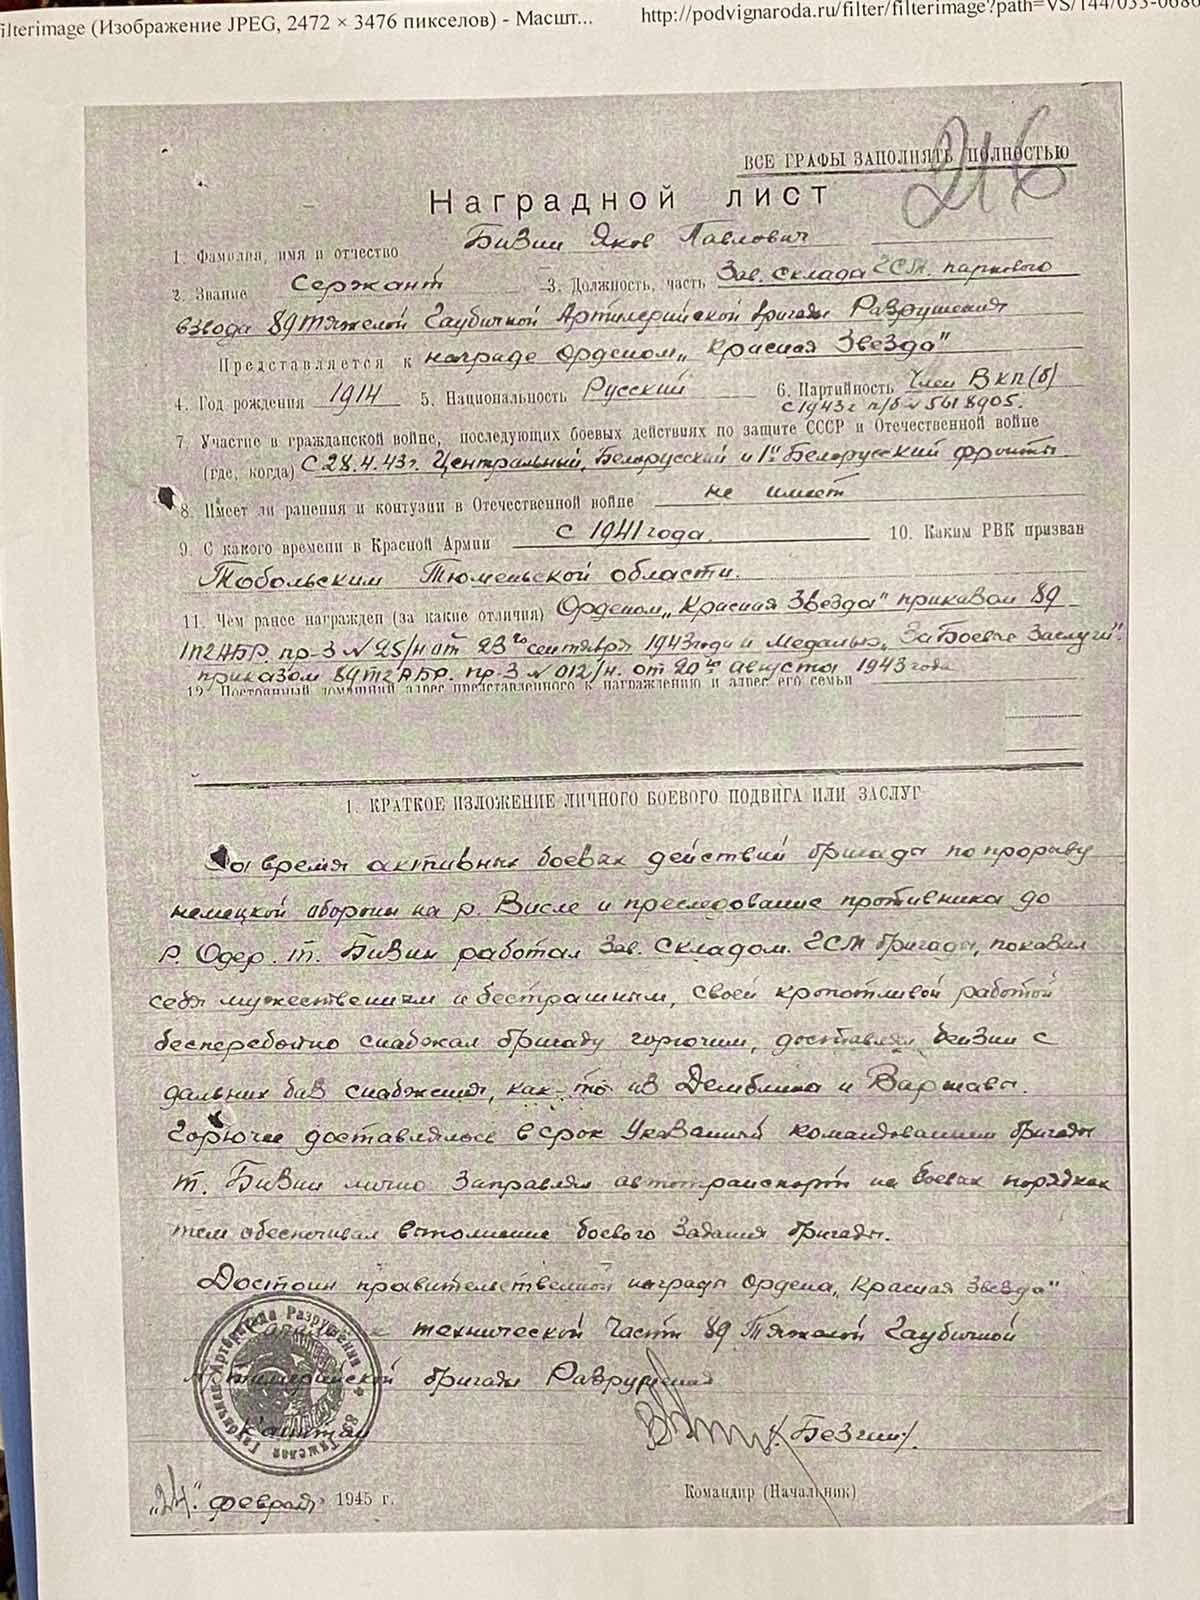 filterimage (Изображение JPEG, 2472 × 3476 пикселов) - Масшт... http://podvignaroda.ru/filter/filterimage?path=VS/144/033-0686
ВСЕ ГРАФЫ ЗАПОЛНЯТЬ ПОЛНОСТЬЮ
216
Наградной лист
1. Фамилия, имя и отчество Бизин Яков Павлович
2. Звание Сержант 3. Должность, часть Зав. склада ГСМ. паркового
взвода 89 Тяжелой Гаубичной Артилерийской бригады Разрушения
Представляется к награде Орденом „Красная Звезда"
4. Год рождения 1914 5. Национальность Русский 6. Партийность Член ВКП(б)
с 1943 г п/б № 5618905.
7. Участие в гражданской войне, последующих боевых действиях по защите СССР и Отечественной войне
(где, когда) С 28.4.43 г. Центральный, Белорусский и 1й Белорусский фронты.
8. Имеет ли ранения и контузии в Отечественной войне не имеет
9. С какого времени в Красной Армии с 1941 года. 10. Каким РВК призван
Тобольским Тюменьской области.
11. Чем ранее награжден (за какие отличия) Орденом „Красная Звезда" приказом 89
тгАБР. пр-з № 25/н от 23го сентября 1943 года и Медалью „За Боевые Заслуги".
приказом 89 тгАБР. пр-з № 012/н. от 20го августа 1943 года
12. Постоянный домашний адрес представленного к награждению и адрес его семьи
1. КРАТКОЕ ИЗЛОЖЕНИЕ ЛИЧНОГО БОЕВОГО ПОДВИГА ИЛИ ЗАСЛУГ
Во время активных боевых действий бригады по прорыву
немецкой обороны на р. Висле и преследование противника до
р. Одер. т. Бизин работал Зав. складом. ГСМ бригады, показал
себя мужественным и бестрашным, своей кропотливой работой
бесперебойно снабжал бригаду горючим, доставлял бензин с
дальних баз снабжения, как-то из Демблина и Варшавы.
Горючее доставлялось в срок Указанный командованием бригады
т. Бизин лично Заправлял автотранспорт на боевых порядках
тем обеспечивал выполнение боевого Задания бригады.
Достоин правительственной награды Ордена „Красная Звезда"
технической Части 89 Тяжелой Гаубичной
Артилерийской бригады Разрушения
Капитан /Безгин/.
„24." февраля 1945 г. Командир (Начальник)